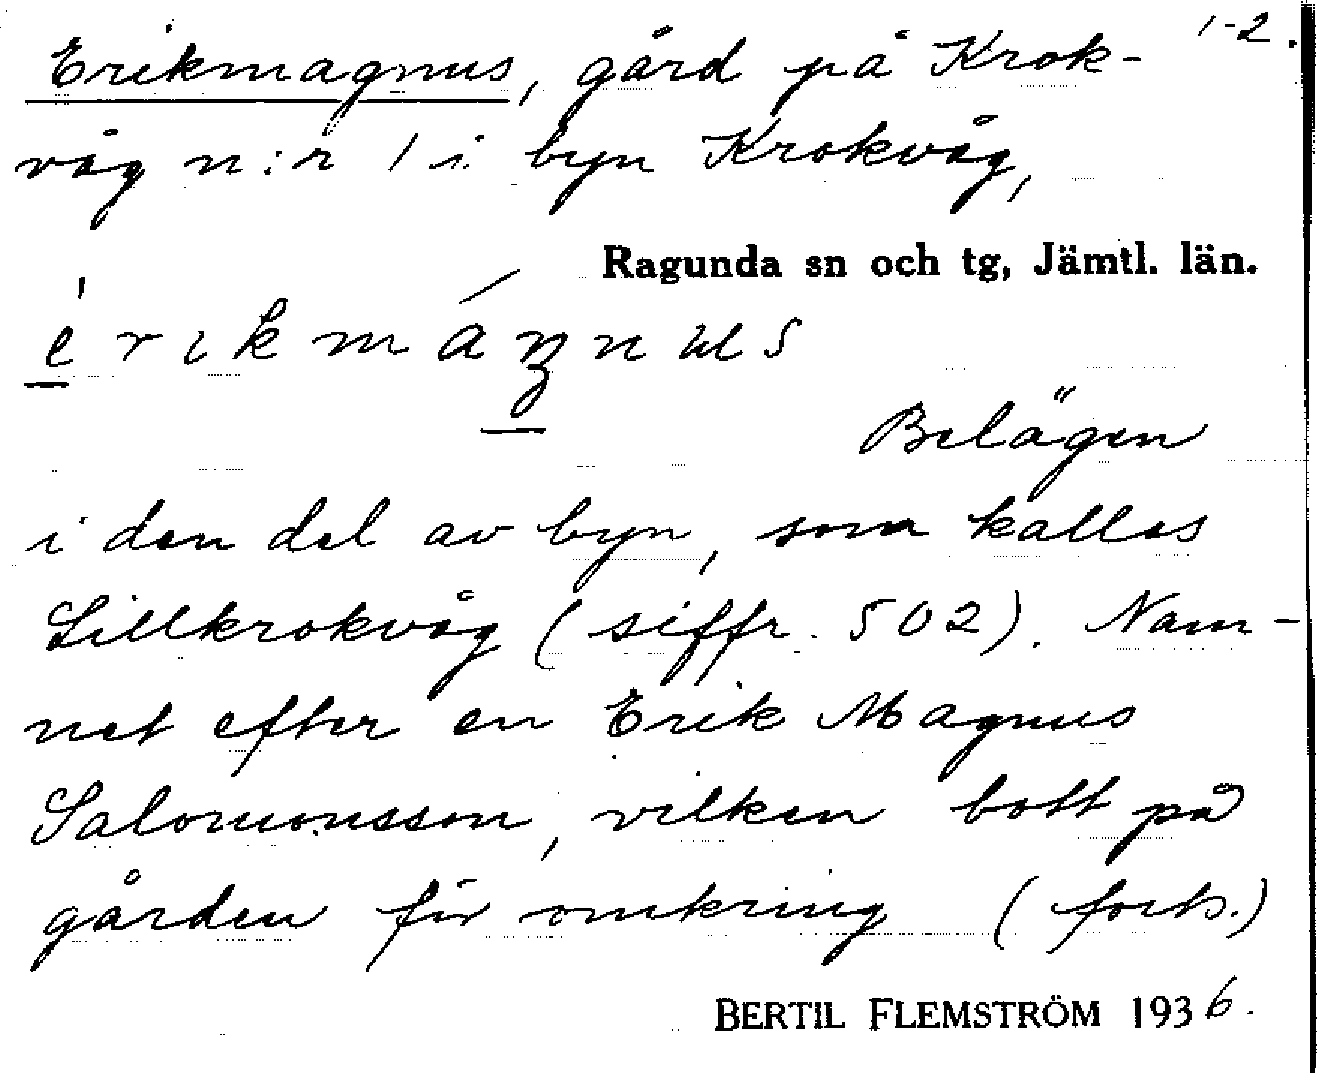 1-2.
Erikmagnus, gård på Krok-
våg n:r 1 i byn Krokvåg,
Ragunda sn och tg, Jämtl. län.
érikmáŋnus
Belägen
i den del av byn, som kallas
Lillkrokvåg (siffr. 502). Nam-
net efter en Erik Magnus
Salomonsson, vilken bott på
gården för omkring (forts.)
BERTIL FLEMSTRÖM 1936.